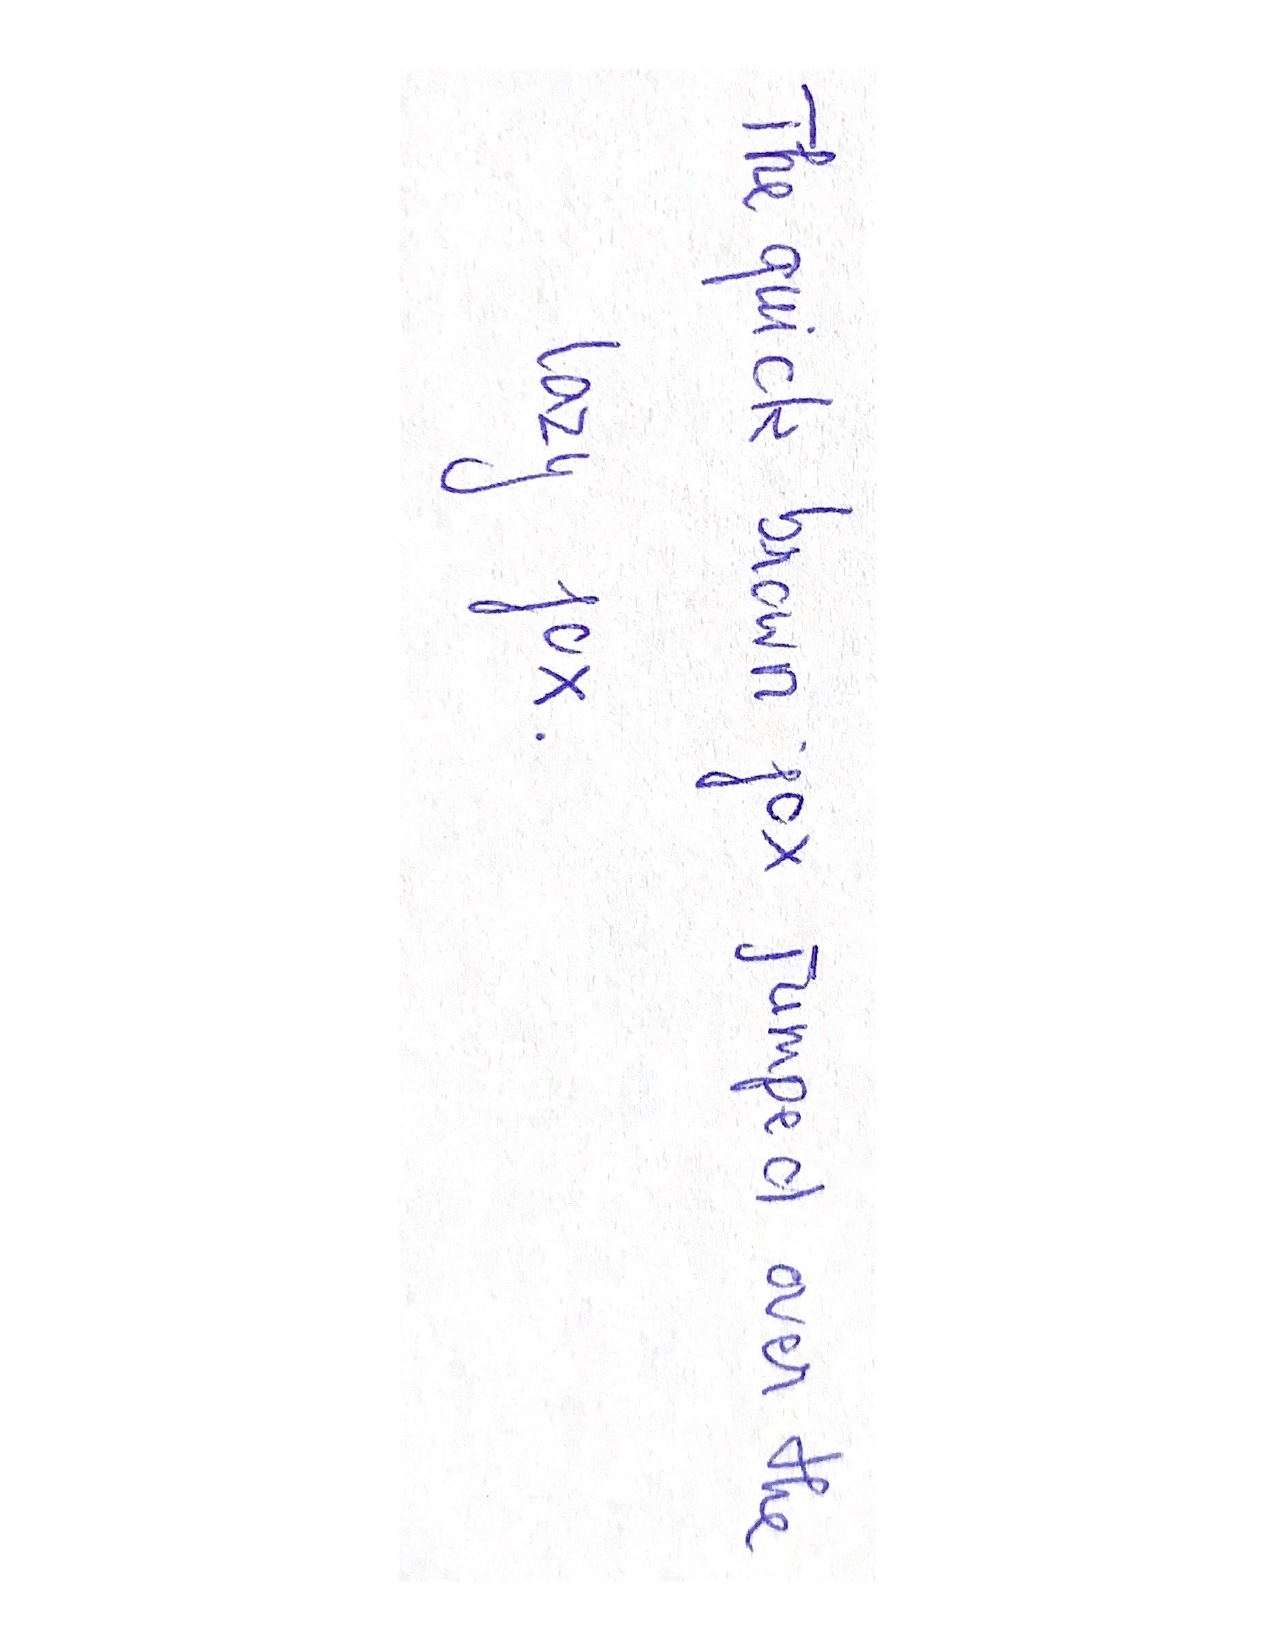 The quick brown fox jumped over the
lazy fox.